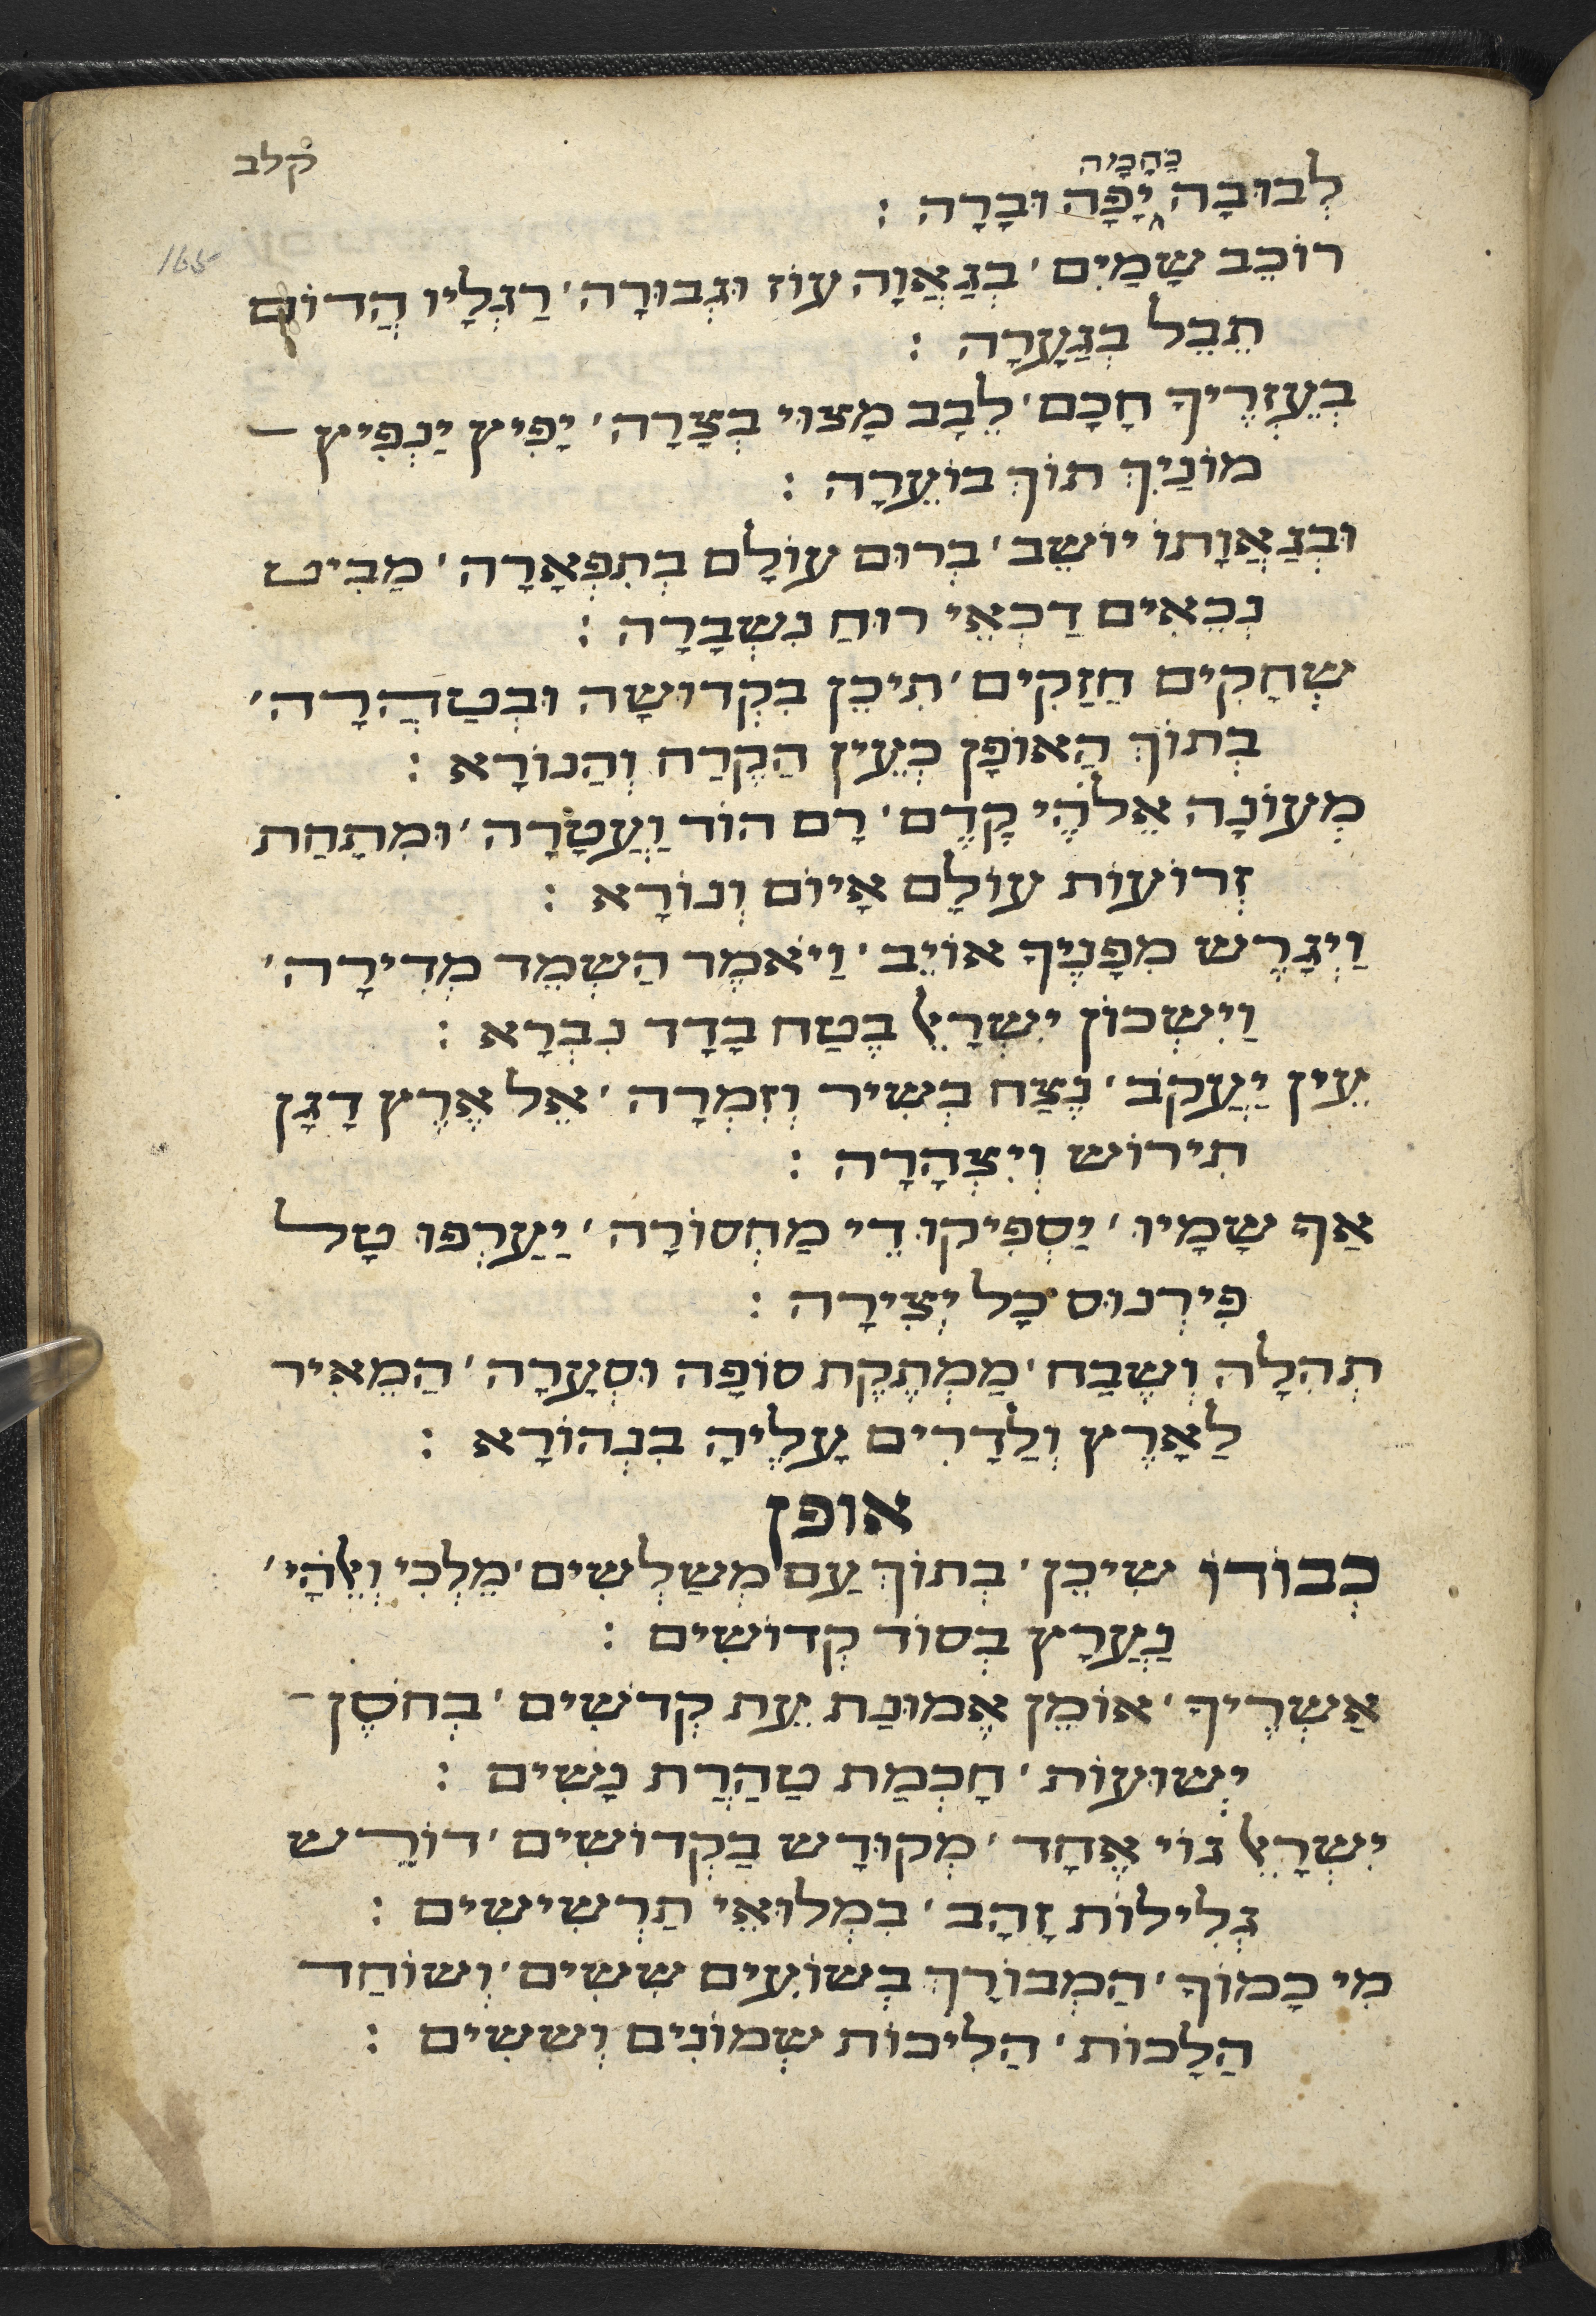 קלב
165
כַּחַמָּה
לְבוּבָה יָפָה וּבָרָה :
רוֹכֵב שָׁמַיִם ׳ בְּגַאֲוָה עוֹז וּגְבוּרָה ׳ רַגְלָיו הֲדוֹם
תֵּבֵל בִּגַעֲרָה :
בְּעֶזְרֶיךָ חָכָם ׳ לֵבָב מָצוּי בְּצָרָה ׳ יָפִיץ יַנְפִּיץ
מוֹנַיִךְ תּוֹךְ בּוֹעֵרָה :
וּבְגַאֲוָתוֹ יוֹשֵׁב ׳ בְּרוּם עוֹלָם בְּתִפְאָרָה ׳ מַבִּיט
נְכֵאִים דַּכְאֵי רוּחַ נִשְׁבָּרָה :
שְׁחָקִים חֲזַקִים ׳ תִּיכֵּן בִּקְדוּשָׁה וּבְטַהֲרָה ׳
בְּתוֹךְ הָאוֹפָן כְּעֵין הַקֶרַח וְהַנוֹרָא :
מְעוֹנָה אֱלֹהֵי קֶדֶם ׳ רָם הוֹד וַעֲטָרָה ׳ וּמִתַּחַת
זְרוֹעוֹת עוֹלָם אָיוֹם וְנוֹרָא :
וַיְגָרֶשׁ מִפָּנֶיךָ אוֹיֵב ׳ וַיֹּאמֶר הַשְׁמֵד מְדִירָה ׳
וַיִשְׁכּוֹן יִשְׂרָאֵל בֶּטַח בָּדָד נִבְרָא :
עֵין יַעֲקֹב ׳ נֶצַח בְּשִׁיר וְזִמְרָה ׳ אֶל אֶרֶץ דָּגָן
תִּירוֹשׁ וְיִצְהָרָה :
אַף שָׁמָיו ׳ יַסְפִּיקוּ דֵי מַחְסוֹרָה ׳ יַעַרְפוּ טָל
פִּירְנוּס כָּל יְצִירָה :
תְּהִלָּה וְשֶׁבַח ׳ מַמְתֶּקֶת סוּפָה וּסְעָרָה ׳ הַמֵּאִיר
לָאָרֶץ וְלַדָּרִים עָלֶיהָ בִּנְהוֹרָא :
אופן
כְּבוֹדוֹ שִׁיכֵּן ׳ בְּתוֹךְ עַם מְשַׁלְּשִׁים ׳ מַלְכִּי וֵאלֹהָי ׳
נַעֲרָץ בְּסוֹד קְדוֹשִׁים :
אַשְׁרֶיךָ ׳ אוֹמֵן אֱמוּנַת עֵת קְדֹשִׁים ׳ בְּחֹסֶן
יְשׁוּעוֹת ׳ חָכְמַת טַהֲרַת נָשִׁים :
יִשְׂרָאֵל גּוֹי אֶחָד ׳ מְקוּדָּשׁ בַּקְּדוֹשִׁים ׳ דּוֹרֵשׁ
גְּלִילוֹת זָהָב ׳ בִּמְלוּאֵי תַרְשִׁישִׁים :
מִי כָמוֹךָ ׳ הַמְבוֹרָךְ בְּשׁוֹעִים שִׁשִּׁים ׳ וְשׁוֹחַד
הֲלָכוֹת ׳ הֲלִיכוֹת שְׁמוֹנִים וְשִׁשִּׁים :